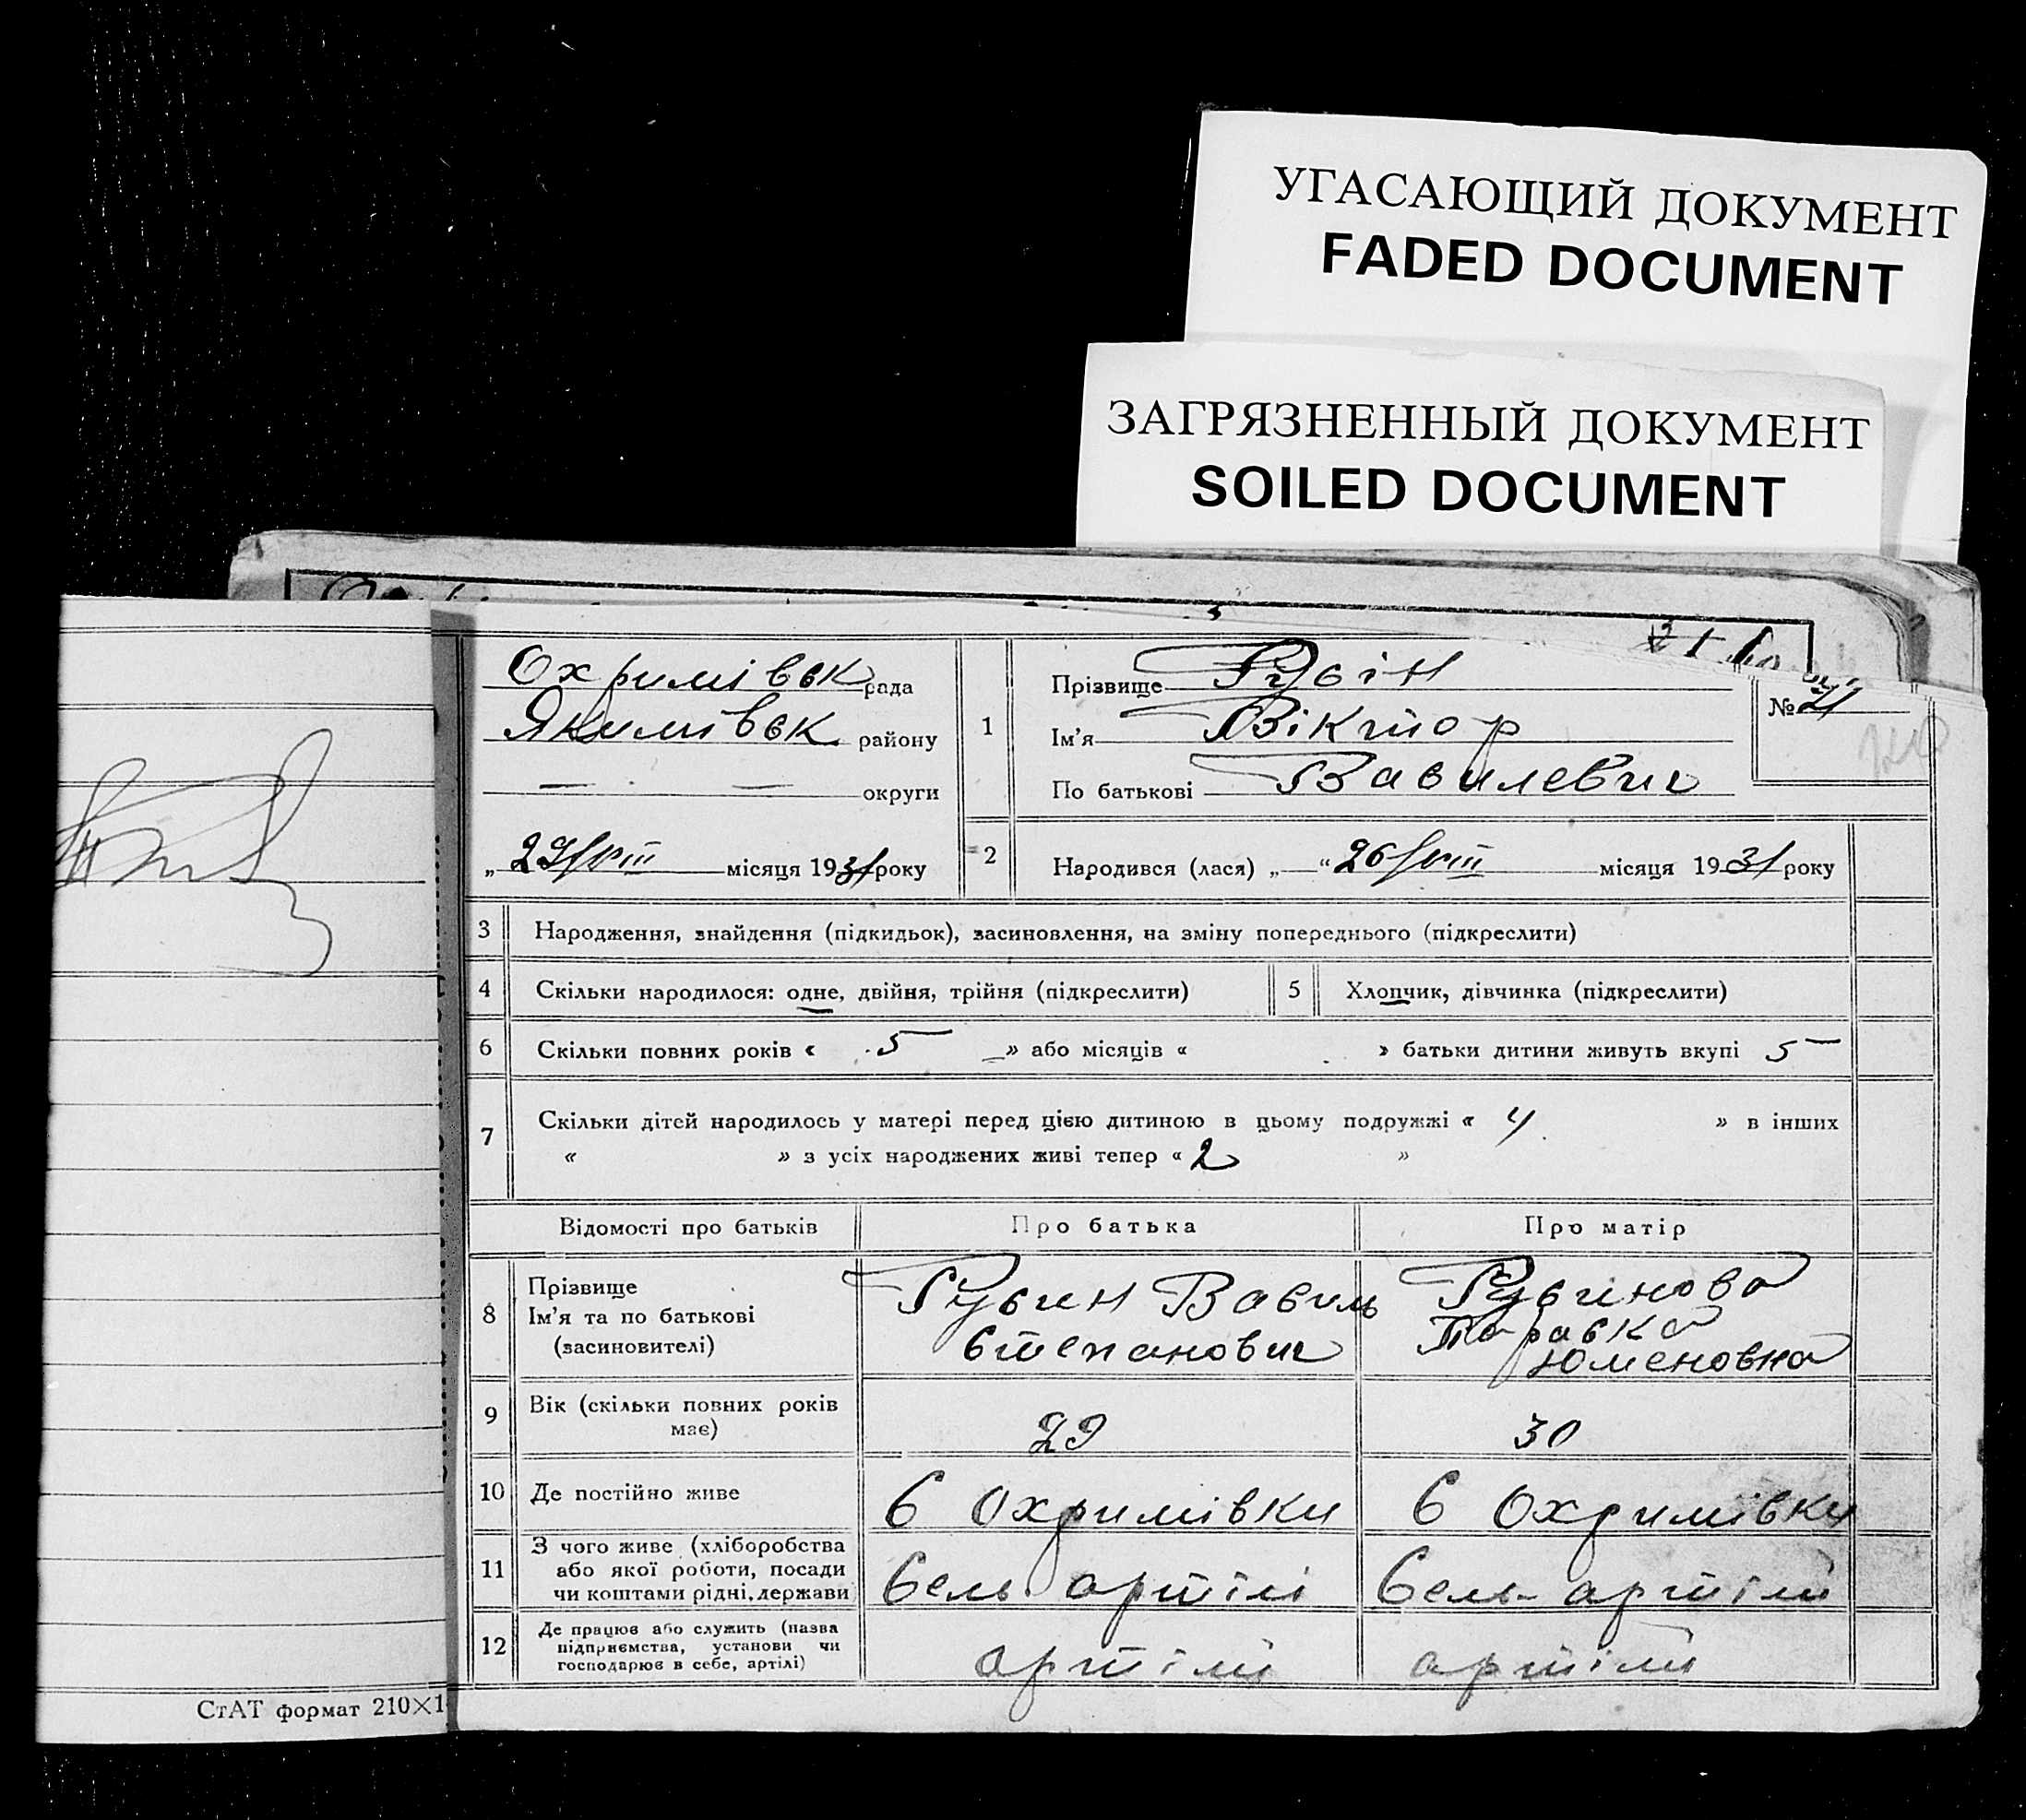 УГАСАЮЩИЙ ДОКУМЕНТ
FADED DOCUMENT
ЗАГРЯЗНЕННЫЙ ДОКУМЕНТ
SOILED DOCUMENT
Охримівск рада
Якимівск району
— — округи
„ 27/VIII місяця 1931 року
1
Прізвище Рубін
Ім'я Віктор
По батькові Вавилевич
№ 21
2
Народився (лася) „ “ 26/VIII місяця 1931 року
3 Народження, знайдення (підкидьок), засиновлення, на зміну попереднього (підкреслити)
4 Скільки народилося: одне, двійня, трійня (підкреслити) 5 Хлопчик, дівчинка (підкреслити)
6 Скільки повних років « 5 » або місяців « » батьки дитини живуть вкупі 5
7 Скільки дітей народилось у матері перед цією дитиною в цьому подружжі « 4 » в інших
« » з усіх народжених живі тепер « 2 »
Відомості про батьків Про батька Про матір
8
Прізвище
Ім'я та по батькові
(засиновителі)
Рубин Вавиль
Степанович
Рубинова
Параска
Юменовна
9 Вік (скільки повних років
має)
29 30
10 Де постійно живе С Охримівки С Охримівки
11 З чого живе (хліборобства
або якої роботи, посади
чи коштами рідні, держави
Сель. артілі Сель- артіли
12 Де працює або служить (назва
підприємства, установи чи
господарює в себе, артілі)
артіли артіли
СтАТ формат 210×1